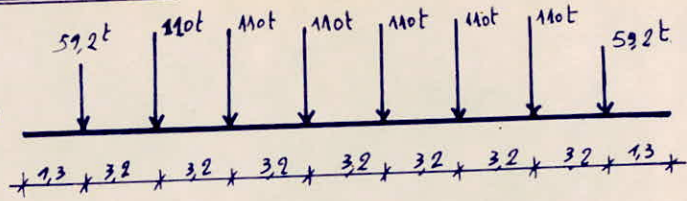 59,2t 110t 110t 110t 110t 110t 110t 59,2t
1,3 3,2 3,2 3,2 3,2 3,2 3,2 3,2 1,3